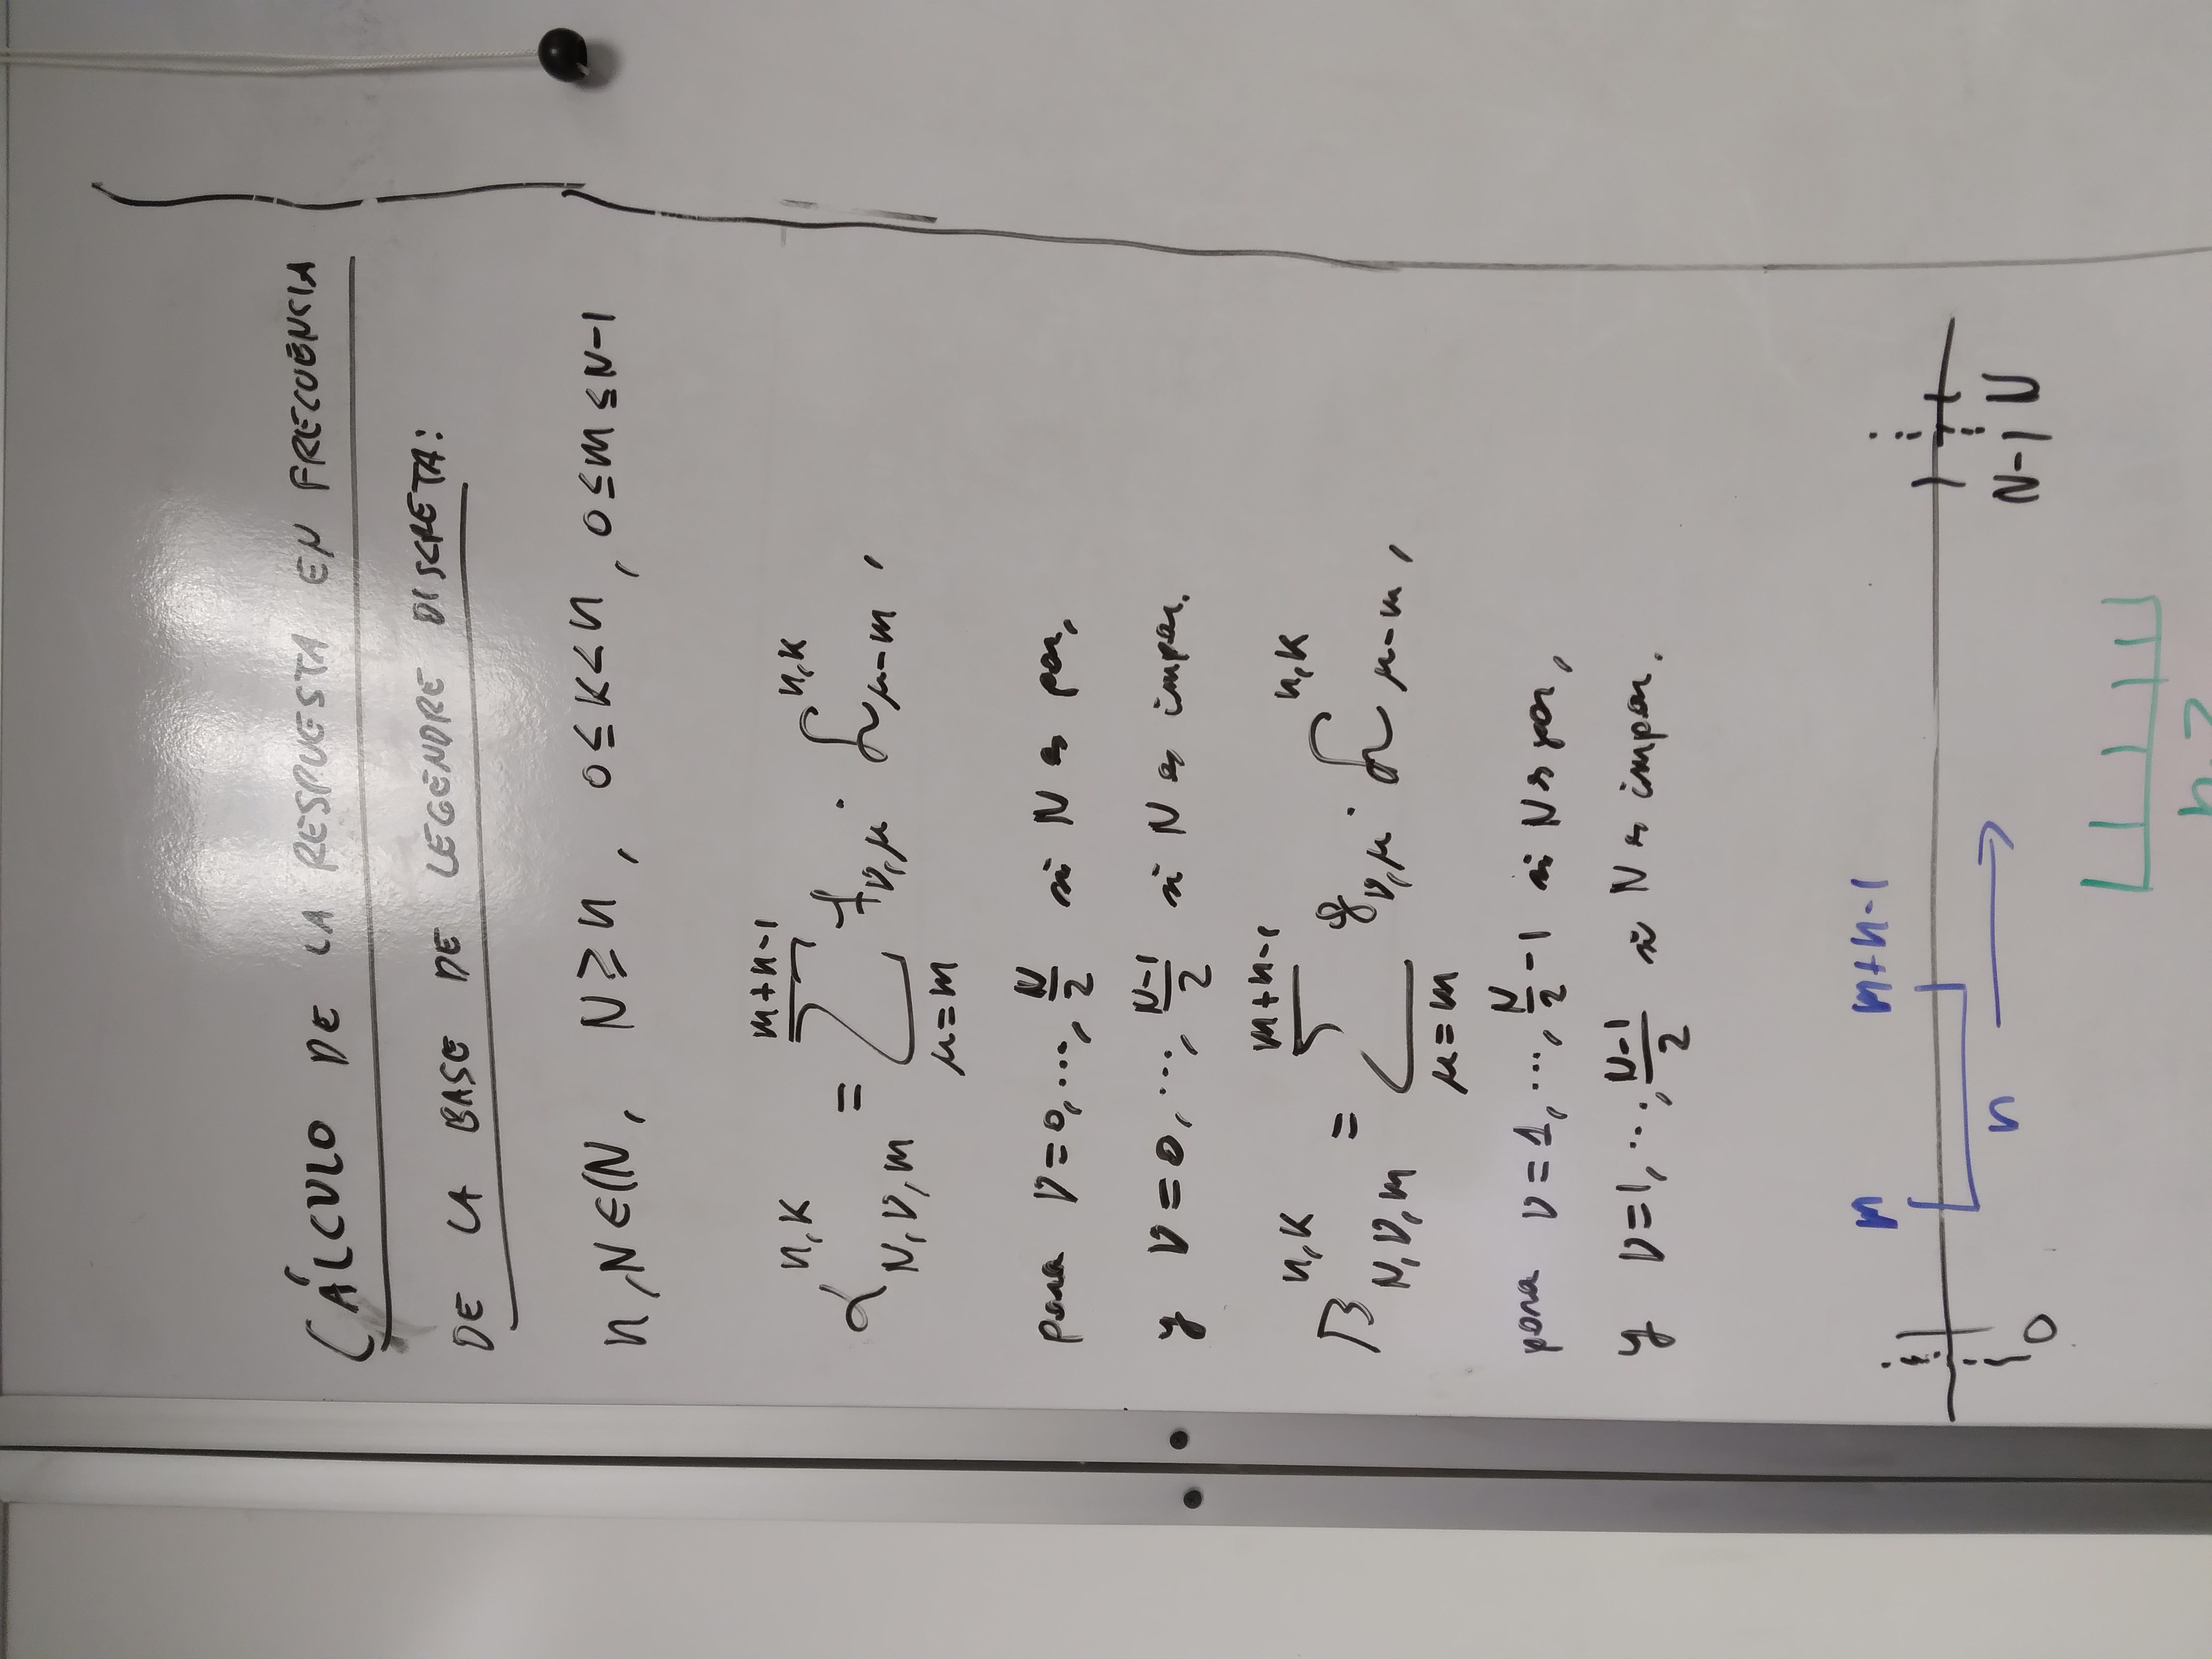 CÁLCULO DE LA RESPUESTA EN FRECUENCIA
DE LA BASE DE LEGENDRE DISCRETA:
n, N ∈ ℕ, N ≥ n, 0 ≤ k < n, 0 ≤ m ≤ N-1
α^{n,k}_{N,ν,m} = ∑_{μ=m}^{m+n-1} f_{ν,μ} · ℒ^{n,k}_{μ-m},
para ν=0, ..., N/2 si N es par,
y ν=0, ..., (N-1)/2 si N es impar.
β^{n,k}_{N,ν,m} = ∑_{μ=m}^{m+n-1} g_{ν,μ} · ℒ^{n,k}_{μ-m},
para ν=1, ..., N/2 - 1 si N es par,
y ν=1, ..., (N-1)/2 si N es impar.
m m+n-1
n
0 N-1 N